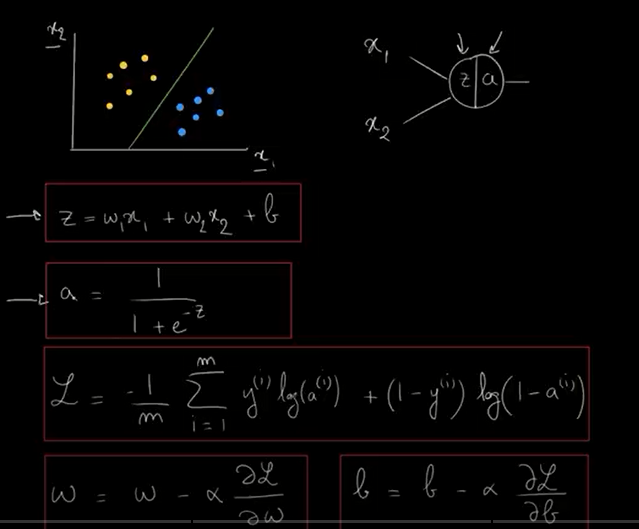 x₂
x₁
x₁
x₂
z a
z = w₁x₁ + w₂x₂ + b
a = 1 / (1 + e^(-z))
ℒ = -1/m ∑_{i=1}^{m} y^(i) log(a^(i)) + (1 - y^(i)) log(1 - a^(i))
w = w - α ∂ℒ/∂w
b = b - α ∂ℒ/∂b